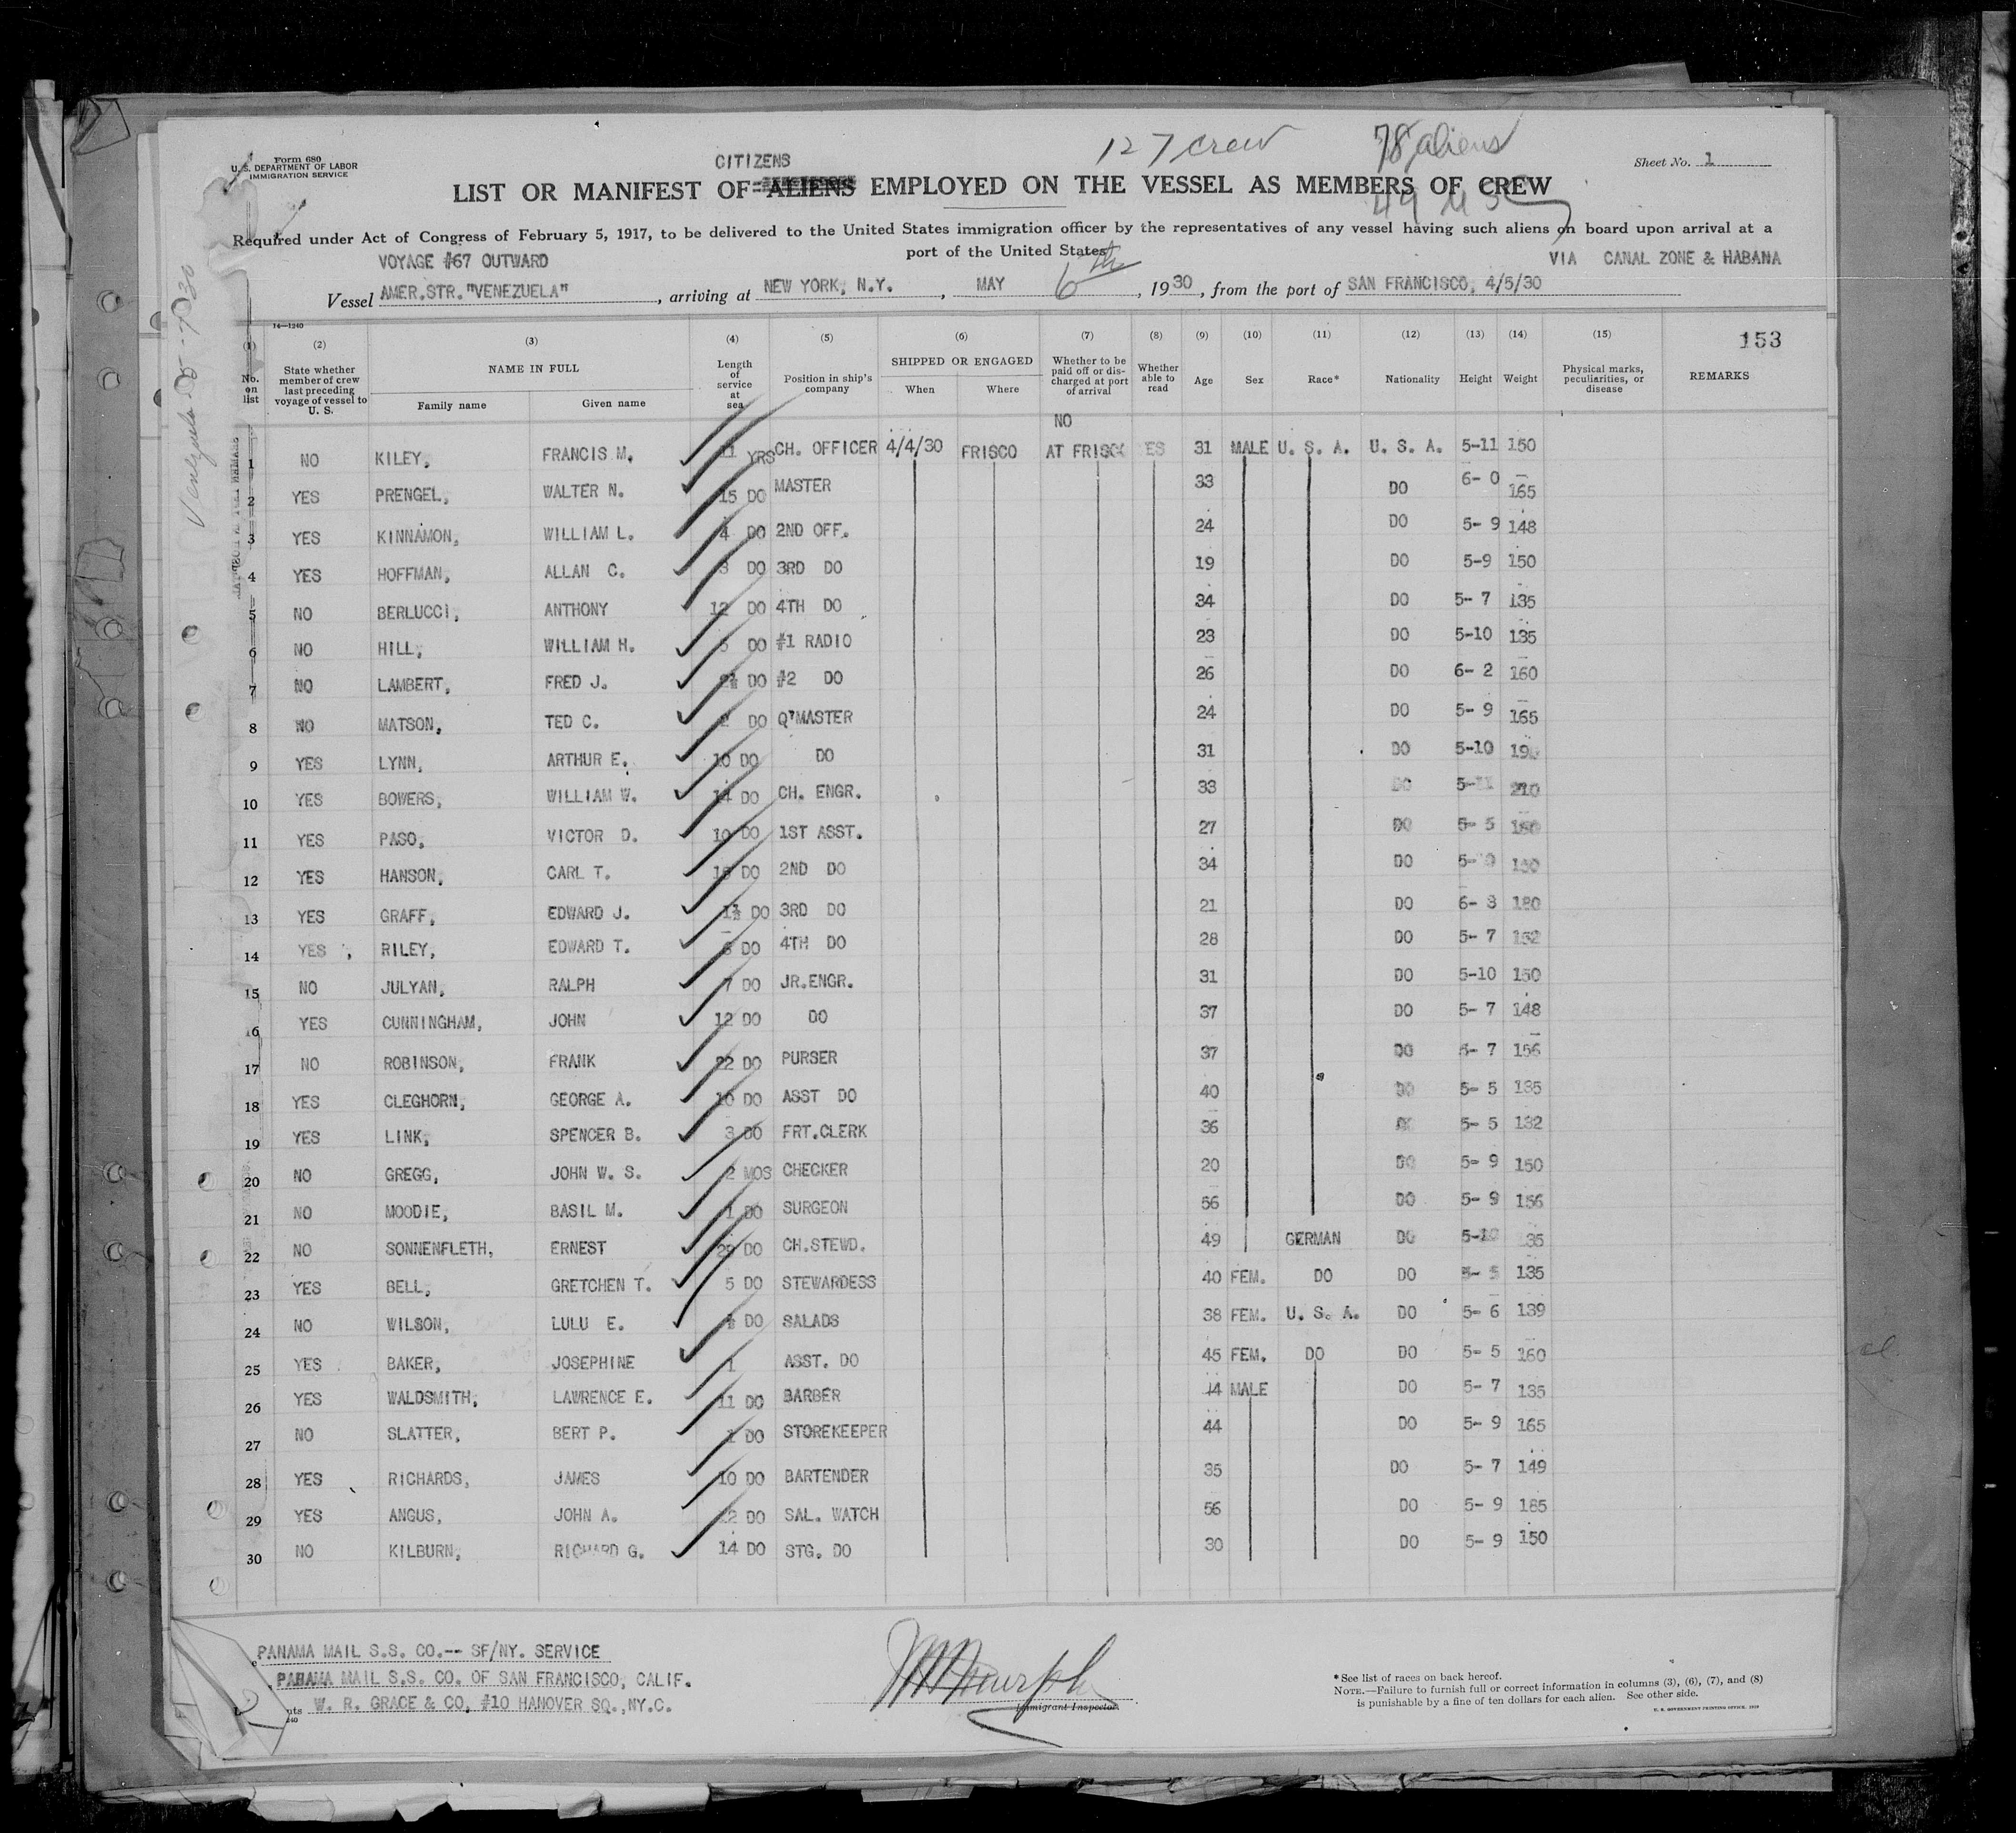 Form 680
U. S. DEPARTMENT OF LABOR
IMMIGRATION SERVICE
127 crew 78 aliens
49 USC
Sheet No. 1
CITIZENS
LIST OR MANIFEST OF ALIENS EMPLOYED ON THE VESSEL AS MEMBERS OF CREW
Required under Act of Congress of February 5, 1917, to be delivered to the United States immigration officer by the representatives of any vessel having such aliens on board upon arrival at a
port of the United States
VOYAGE #67 OUTWARD VIA CANAL ZONE & HABANA
Vessel AMER.STR."VENEZUELA", arriving at NEW YORK, N.Y., MAY 6th, 1930, from the port of SAN FRANCISCO, 4/5/30
14—1240
(1) (2) (3) (4) (5) (6) (7) (8) (9) (10) (11) (12) (13) (14) (15) 153
No. on list State whether member of crew last preceding voyage of vessel to U. S. NAME IN FULL Length of service at sea Position in ship's company SHIPPED OR ENGAGED Whether to be paid off or discharged at port of arrival Whether able to read Age Sex Race* Nationality Height Weight Physical marks, peculiarities, or disease REMARKS
Family name Given name When Where
NO
1 NO KILEY, FRANCIS M. 11 YRS CH. OFFICER 4/4/30 FRISCO AT FRISCO YES 31 MALE U. S. A. U. S. A. 5-11 150
2 YES PRENGEL, WALTER N. 15 DO MASTER 33 DO 6- 0 165
3 YES KINNAMON, WILLIAM L. 4 DO 2ND OFF. 24 DO 5- 9 148
4 YES HOFFMAN, ALLAN C. 3 DO 3RD DO 19 DO 5-9 150
5 NO BERLUCCI, ANTHONY 12 DO 4TH DO 34 DO 5- 7 135
6 NO HILL, WILLIAM H. 5 DO #1 RADIO 23 DO 5-10 135
7 NO LAMBERT, FRED J. DO #2 DO 26 DO 6- 2 160
8 NO MATSON, TED C. 2 DO Q'MASTER 24 DO 5- 9 165
9 YES LYNN, ARTHUR E. 10 DO DO 31 DO 5-10
10 YES BOWERS, WILLIAM W. 14 DO CH. ENGR. 33 DO 210
11 YES PASO, VICTOR D. 10 DO 1ST ASST. 27 DO 5- 5
12 YES HANSON, CARL T. DO 2ND DO 34 DO
13 YES GRAFF, EDWARD J. 1½ DO 3RD DO 21 DO 6- 3 180
14 YES, RILEY, EDWARD T. 6 DO 4TH DO 28 DO 5- 7 152
15 NO JULYAN, RALPH 7 DO JR.ENGR. 31 DO 5-10 150
16 YES CUNNINGHAM, JOHN 12 DO DO 37 DO 5- 7 148
17 NO ROBINSON, FRANK 22 DO PURSER 37 DO 5- 7 156
18 YES CLEGHORN, GEORGE A. 10 DO ASST DO 40 DO 5- 5 135
19 YES LINK, SPENCER B. 3 DO FRT.CLERK 36 5- 5 132
20 NO GREGG, JOHN W. S. 2 MOS CHECKER 20 DO 5- 9 150
21 NO MOODIE, BASIL M. 1 DO SURGEON 56 DO 5- 9 156
22 NO SONNENFLETH, ERNEST DO CH.STEWD. 49 GERMAN DO
23 YES BELL, GRETCHEN T. 5 DO STEWARDESS 40 FEM. DO DO 5- 5 135
24 NO WILSON, LULU E. ½ DO SALADS 38 FEM. U. S. A. DO 5- 6 139
25 YES BAKER, JOSEPHINE 1 ASST. DO 45 FEM. DO DO 5- 5 160
26 YES WALDSMITH, LAWRENCE E. 11 DO BARBER 44 MALE DO 5- 7 135
27 NO SLATTER, BERT P. 1 DO STOREKEEPER 44 DO 5- 9 165
28 YES RICHARDS, JAMES 10 DO BARTENDER 35 DO 5- 7 149
29 YES ANGUS, JOHN A. DO SAL. WATCH 56 DO 5- 9 185
30 NO KILBURN, RICHARD G. 14 DO STG. DO 30 DO 5- 9 150
PANAMA MAIL S.S. CO.-- SF/NY. SERVICE
PANAMA MAIL S.S. CO. OF SAN FRANCISCO, CALIF.
W. R. GRACE & CO, #10 HANOVER SQ.,NY.C.
Immigrant Inspector.
*See list of races on back hereof.
NOTE.—Failure to furnish full or correct information in columns (3), (6), (7), and (8)
is punishable by a fine of ten dollars for each alien. See other side.
U. S. GOVERNMENT PRINTING OFFICE